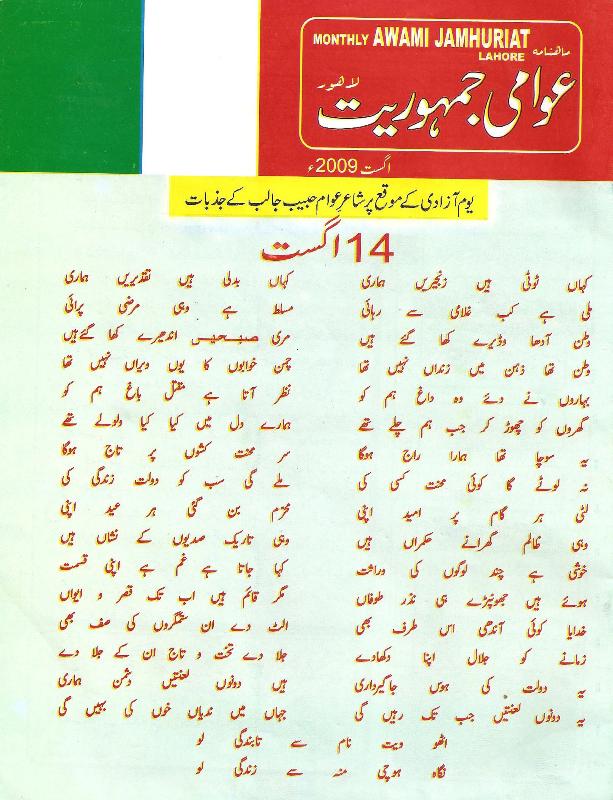 MONTHLY AWAMI JAMHURIAT
LAHORE
ماهنامه
لاهور
عوامی جمہوریت
اگست 2009ء
یوم آزادی کے موقع پر شاعرِ عوام حبیب جالب کے جذبات
14 اگست
کہاں ٹوٹی ہیں زنجیریں ہماری کہاں بدلی ہیں تقدیریں ہماری
ملی ہے کب غلامی سے رہائی مسلط ہے وہی مرضی پرائی
وطن آدھا وڈیرے کھا گئے ہیں مری صبحیں اندھیرے کھا گئے ہیں
وطن تھا ذہن میں زنداں نہیں تھا چمن خوابوں کا یوں ویراں نہیں تھا
بہاروں نے دئے وہ داغ ہم کو نظر آتا ہے مقتل باغ ہم کو
گھروں کو چھوڑ کر جب ہم چلے تھے ہمارے دل میں کیا کیا ولولے تھے
یہ سوچا تھا ہمارا راج ہوگا سر محنت کشوں پر تاج ہوگا
نہ لوٹے گا کوئی محنت کسی کی ملے گی سب کو دولت زندگی کی
لٹی ہر گام پر امید اپنی محرم بن گئی ہر عید اپنی
وہی ظالم گھرانے حکمراں ہیں وہی تاریک صدیوں کے نشاں ہیں
خوشی ہے چند لوگوں کی وراثت کہا جاتا ہے غم ہے اپنی قسمت
ہوئے ہیں جھونپڑے ہی نذر طوفاں مگر قائم ہیں اب تک قصر و ایواں
خدایا کوئی آندھی اس طرف بھی الٹ دے ان ستمگروں کی صف بھی
زمانے کو جلال اپنا دکھادے جلا دے تخت و تاج ان کے جلا دے
یہ دولت کی ہوس جاگیرداری ہیں دونوں لعنتیں دشمن ہماری
یہ دونوں لعنتیں جب تک رہیں گی جہاں میں ندیاں خوں کی بہیں گی
اٹھو ویت نام سے تابندگی لو
نگاہ ہوچی منہ سے زندگی لو